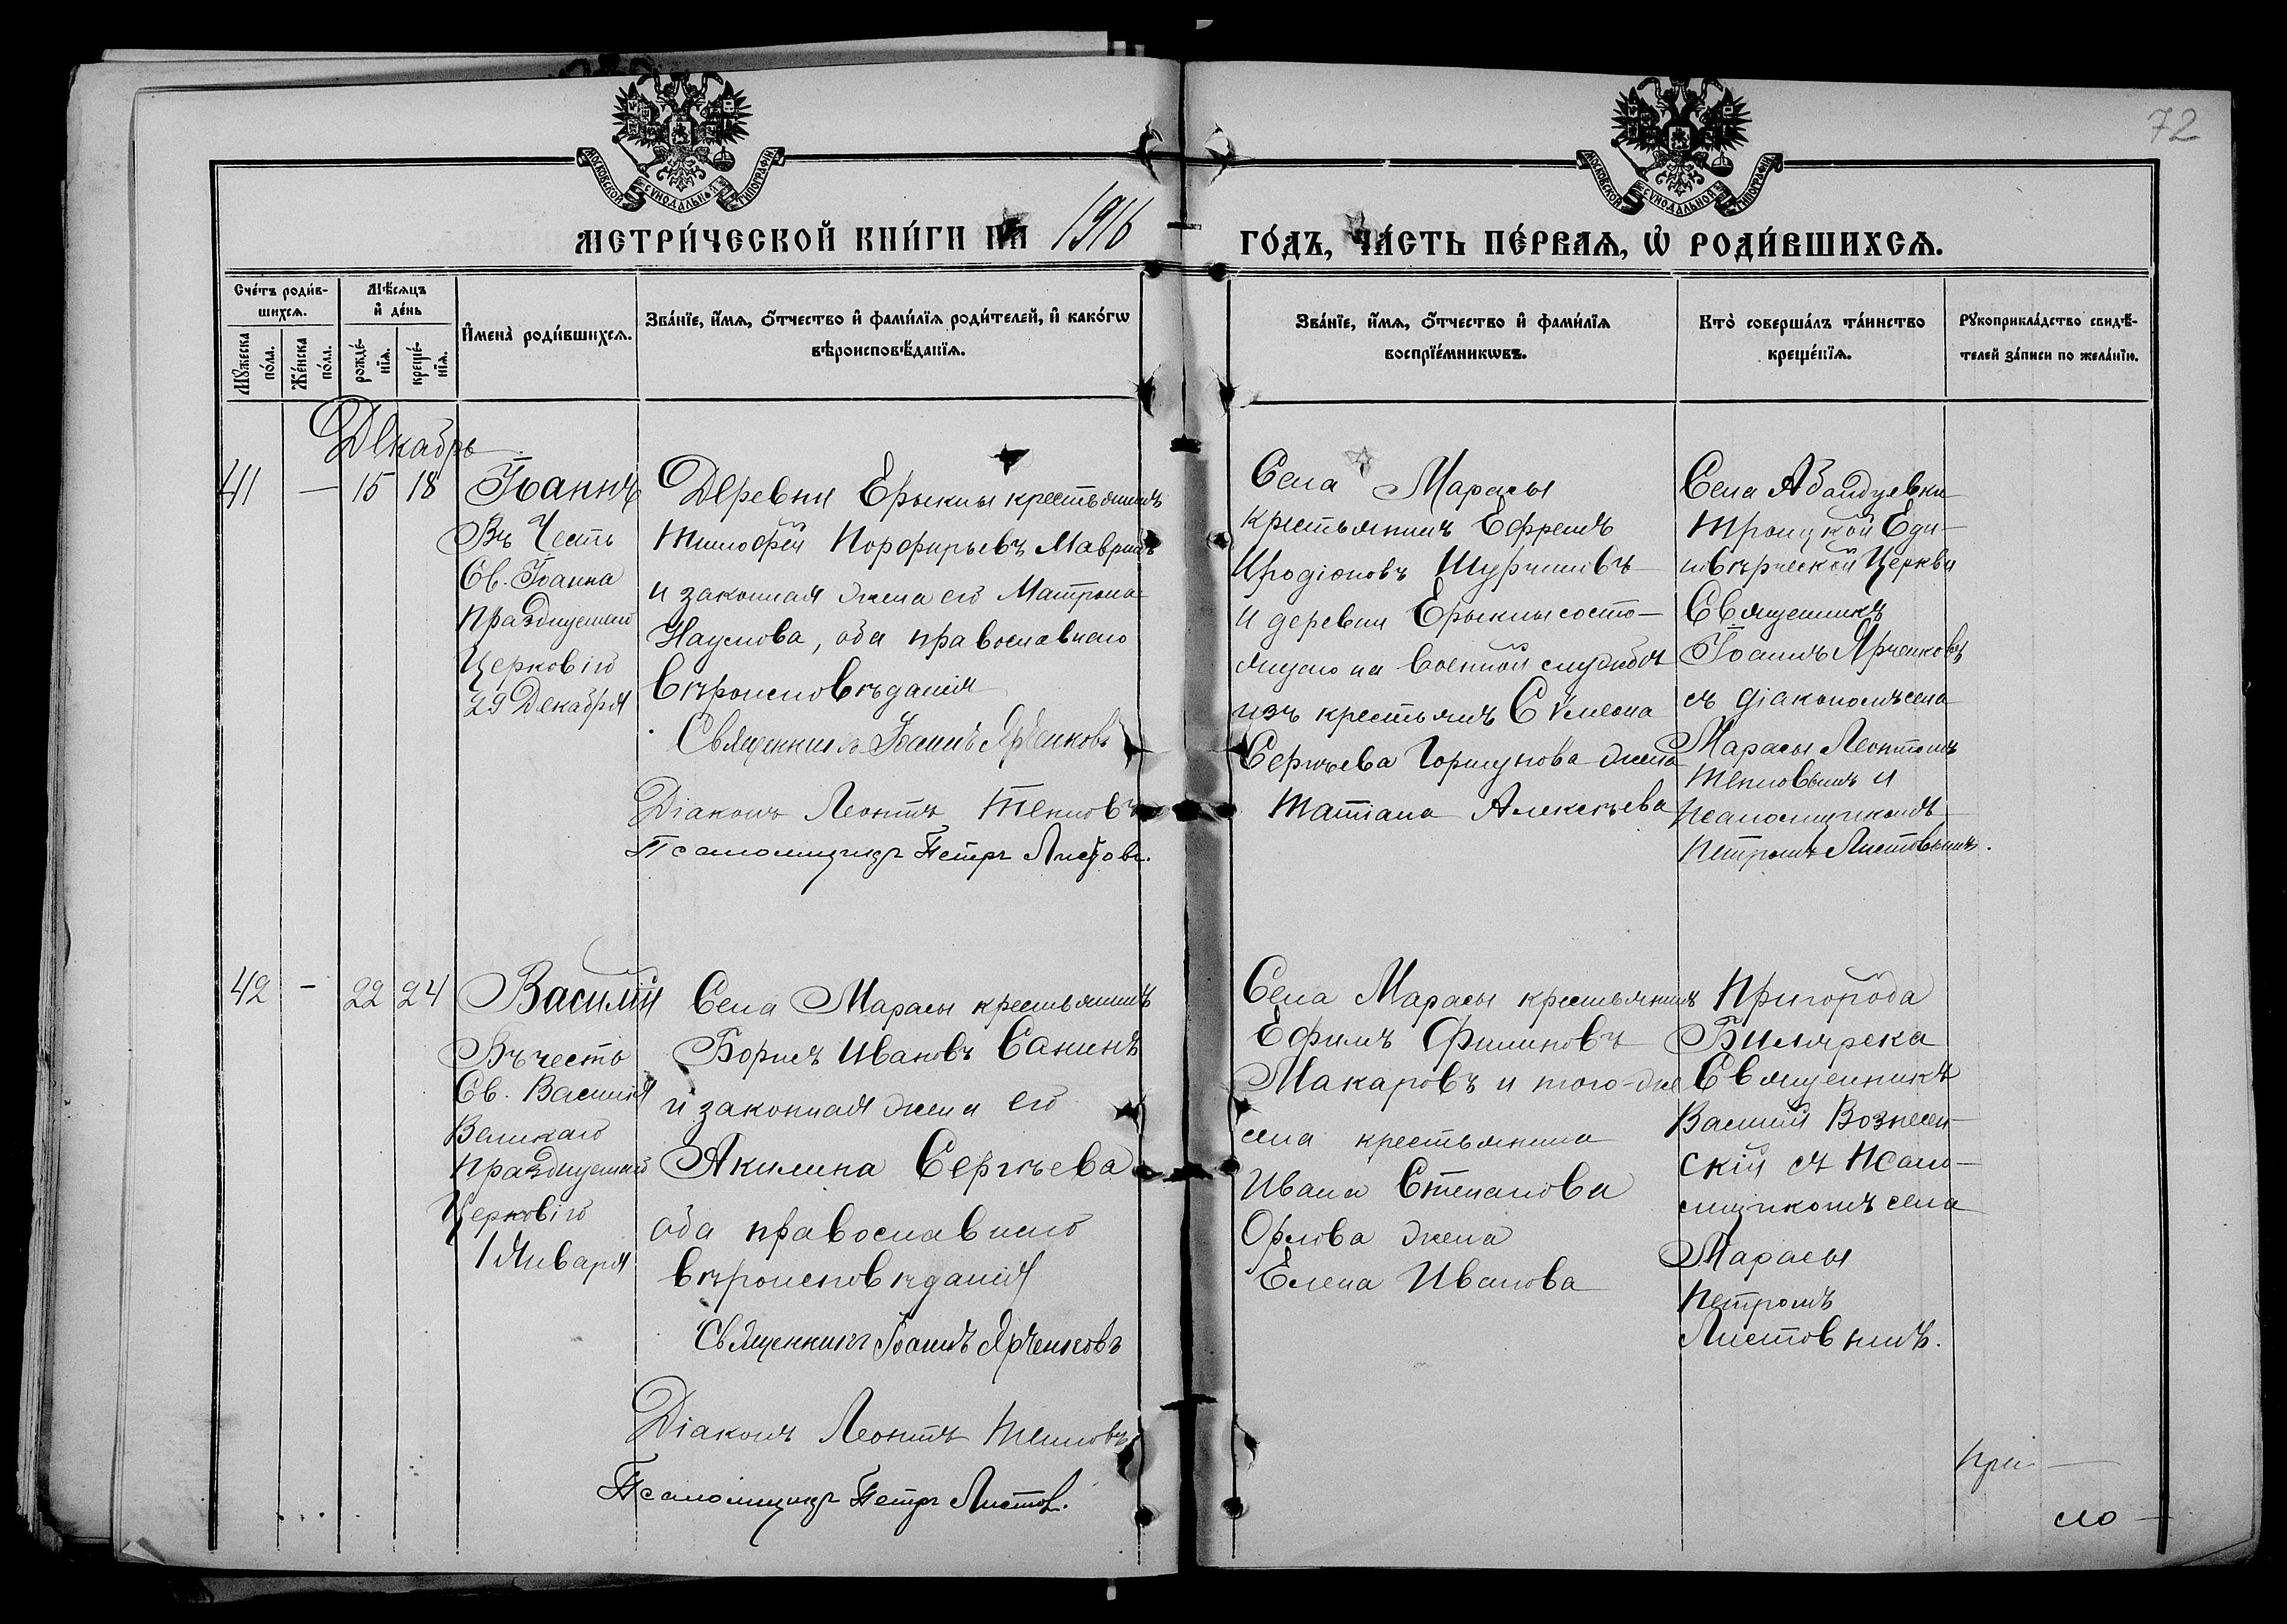 72
МОСКОВСКОЙ СѴНОДАЛЬНОЙ ТИПОГРАФІИ
МОСКОВСКОЙ СѴНОДАЛЬНОЙ ТИПОГРАФІИ
МЕТРИ́ЧЕСКОЙ КНИ́ГИ НА 1916
ГО́ДЪ, ЧА́СТЬ ПЕ́РВАѦ, Ѡ҆ РОДИ́ВШИХСѦ.
Сче́тъ роди́в-
шихсѧ.
Мꙋжеска
по́ла.
Же́нска
по́ла.
Мѣ́сѧцъ
и҆ де́нь
рожде́-
нїѧ.
креще́-
нїѧ.
И҆мена̀ роди́вшихсѧ.
Зва́нїе, и҆́мѧ, ѻ҆́тчество и҆ фами́лїѧ роди́телей, и҆ како́гѡ
вѣроисповѣ́данїѧ.
Зва́нїе, и҆́мѧ, ѻ҆́тчество и҆ фами́лїѧ
воспрїе́мникѡвъ.
Кто̀ соверша́лъ та́инство
креще́нїѧ.
Рꙋкоприкла́дство свидѣ́-
телей за́писи по жела́нїю.
Декабрь
41 — 15 18
Іоаннъ
Въ Честь
Св. Іоанна
празднуемаго
Церковію
29 Декабря
Деревни Ерыклы крестьянинъ
Тимофей Порфирьевъ Мавринъ
и законная жена его Матрона
Наумова, оба православнаго
вѣроисповѣданія
Священникъ Іоаннъ Ярченковъ
Діаконъ Леонтъ Тепловъ
Псаломщикъ Петръ Листовъ.
Села Марасы
крестьянинъ Ефремъ
Иродіоновъ
и деревни Ерыклы состо-
ящаго на военной службѣ
изъ крестьянъ Симеона
Сергѣева Горшунова жена
Татіана Алексѣева
Села Абалдуевки
Троицкой Еди-
новѣрческой Церкви
Священникъ
Іоаннъ Ярченковъ
съ діакономъ села
Марасы Леонтомъ
Тепловымъ и
псаломщикомъ
Петромъ Листовымъ.
42 - 22 24
Василій
Въ честь
Св. Василія
Великаго
празднуемаго
Церковію
1 Января
Села Марасы крестьянинъ
Борисъ Ивановъ Санинъ
и законная жена его
Акилина Сергѣева
оба православнаго
вѣроисповѣданія
Священникъ Іоаннъ Ярченковъ
Діаконъ Леонтъ Тепловъ
Псаломщикъ Петръ Листов.
Села Марасы крестьянинъ
Ефимъ Филиповъ
Макаровъ и того-же
села крестьянина
Ивана Степанова
Орлова жена
Елена Иванова
Пригорода
Билярска
Священникъ
Василій Вознесен-
скій съ псало-
мщикомъ села
Марасы
Петромъ
Листовымъ.
при —
ло —